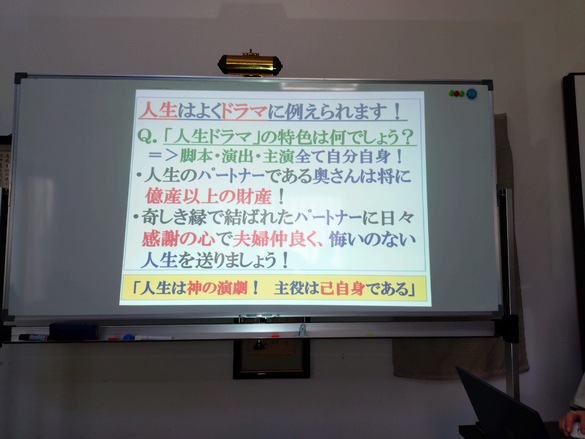 人生はよくドラマに例えられます！
Q．「人生ドラマ」の特色は何でしょう？
＝＞脚本・演出・主演全て自分自身！
・人生のパートナーである奥さんは将に
億産以上の財産！
・奇しき縁で結ばれたパートナーに日々
感謝の心で夫婦仲良く、悔いのない
人生を送りましょう！
「人生は神の演劇！　主役は己自身である」